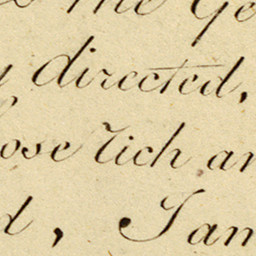 the Ge
y directed,
ose rich an
d, I am